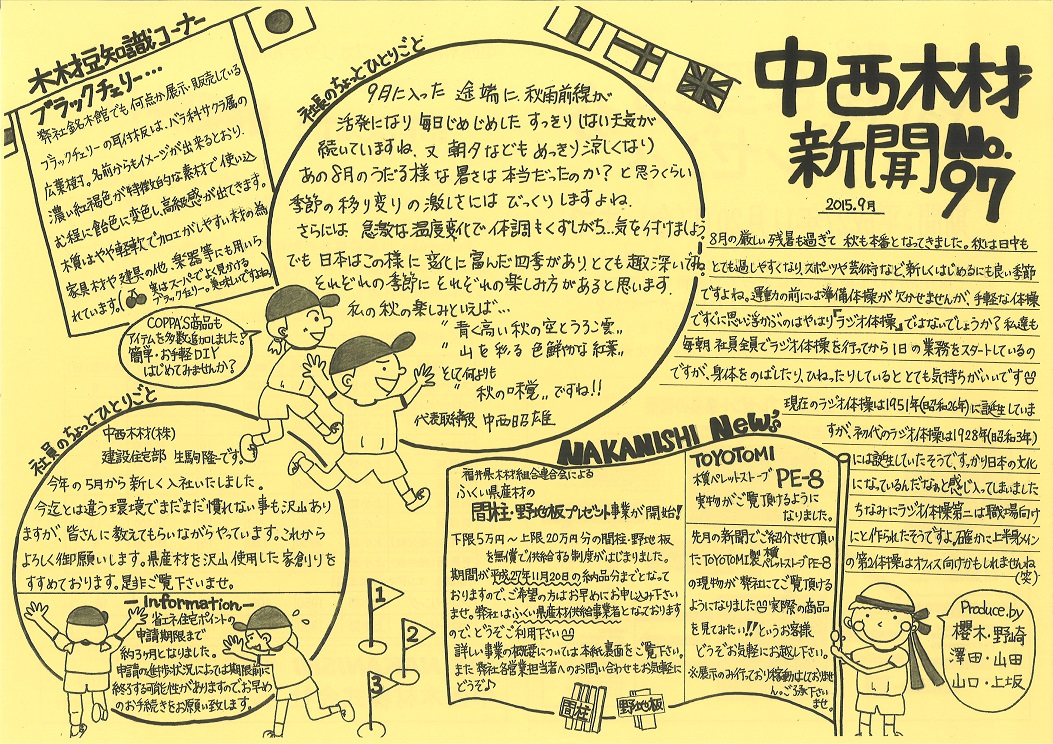 中西木材
新聞 No.97
2015.9月
8月の厳しい残暑も過ぎて 秋も本番となってきました。秋は日中も
とても過しやすくなり、スポーツや芸術など新しくはじめるにも良い季節
ですよね。運動の前には準備体操が欠かせませんが、手軽な体操
ですぐに思い浮かぶのはやはり『ラジオ体操』ではないでしょうか？私達も
毎朝 社員全員でラジオ体操を行ってから1日の業務をスタートしているの
ですが、身体をのばしたり、ひねったりしているととても気持ちがいいです
現在のラジオ体操は1951年(昭和26年)に誕生していま
すが、初代のラジオ体操は1928年(昭和3年)
には誕生していたそうで、すっかり日本の文化
になっているんだなぁと感じ入ってしまいました
ちなみにラジオ体操第二は職場向け
にと作られたそうですよ。確かに上半身メイン
の第2体操はオフィス向けかもしれませんね
(笑)
Produce.by
櫻木・野崎
澤田・山田
山口・上坂
社長のちょっとひとりごと
9月に入った 途端に、秋雨前線が
活発になり 毎日じめじめした すっきりしない天気が
続いていますね、又 朝夕なども めっきり涼しくなり
あの8月のうだる様な 暑さは 本当だったのか？と思うくらい
季節の移り変りの 激しさには びっくりしますよね.
さらには 急激な温度変化で体調もくずしがち…気を付けましょう!
でも 日本はこの様に 変化に富んだ四季があり、とても 趣深いですね
それぞれの季節に それぞれの楽しみ方があると思います.
私の 秋の楽しみといえば…
〝青く高い秋の空とうろこ雲〟
〝山を彩る 色鮮やかな紅葉〟
そして何よりも
〝秋の味覚〟ですね!!
代表取締役 中西昭雄
木材豆知識コーナー
ブラックチェリー…
弊社銘木館でも何点か展示・販売している
ブラックチェリーの耳付板は、バラ科サクラ属の
広葉樹す。名前からもイメージが出来るとおり、
濃い紅褐色が特徴的な素材で 使い込
む程に飴色に変色し、高級感が出てきます。
木質はやや軽軟で加工がしやすい材の為
家具材や建具の他、楽器等にも用いら
れています。
実はスーパーでよく見かける
ブラックチェリー。美味しいですよね
COPPA'S商品も
アイテムを多数追加しました!
簡単・お手軽DIY
はじめてみませんか?
社員のちょっとひとりごと
中西木材(株)
建設住宅部 生駒隆です。
今年の5月から新しく入社いたしました。
今迄とは違う環境でまだまだ慣れない事も沢山あり
ますが、皆さんに教えてもらいながらやっています。これから
よろしく御願いします。県産材を沢山使用した家創りを
すすめております。是非ご覧下さいませ。
-Information-
省エネ住宅ポイントの
申請期限まで
約3ヶ月となりました。
申請の進捗状況によっては期限前に
終了する可能性がありますのでお早め
のお手続きをお願い致します。
1
2
3
NAKANISHI New's
福井県木材組合連合会による
ふくい県産材の
間柱・野地板プレゼント事業が開始!
下限5万円～上限20万円分の間柱・野地板
を無償で供給する制度がはじまりました。
期間が平成27年11月20日の納品分までとなって
おりますので、ご希望の方はお早めにお申し込み下さい
ませ。弊社はふくい県産材供給事業者となっております
ので、どうぞご利用下さい
詳しい事業の概要については本紙裏面をご覧下さい。
また弊社各営業担当者へのお問い合わせもお気軽に
どうぞ♪
間柱
野地板
TOYOTOMI
木質ペレットストーブ PE-8
実物がご覧頂けるように
なりました。
先月の新聞でご紹介させて頂い
たTOYOTOMI製木質ペレットストーブPE-8
の現物が弊社にてご覧頂ける
ようになりました 実際の商品
を見てみたい!!というお客様、
どうぞお気軽にお越し下さい。
※展示のみ行っており稼動はしておりませ
ん。ご了承下さい
ませ。